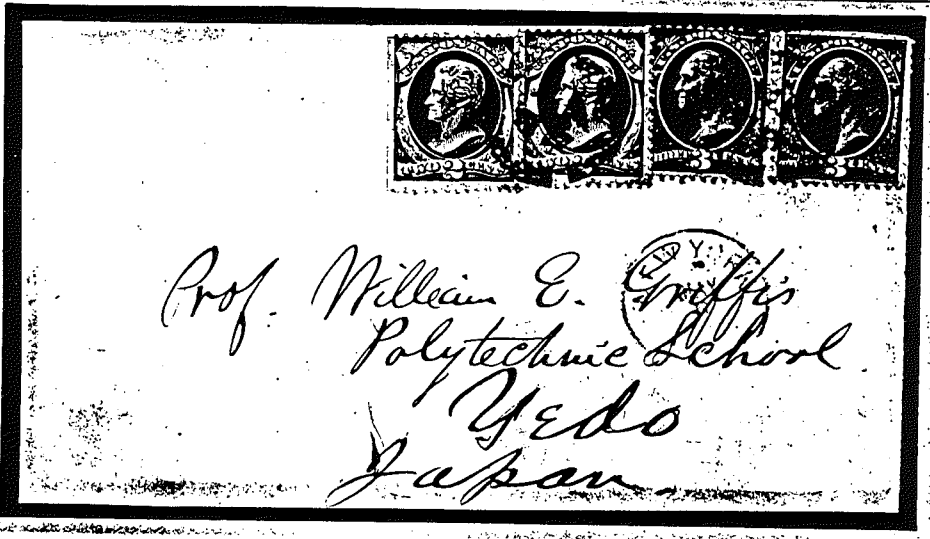 Prof. William E. Griffis
Polytechnic School
Yedo
Japan